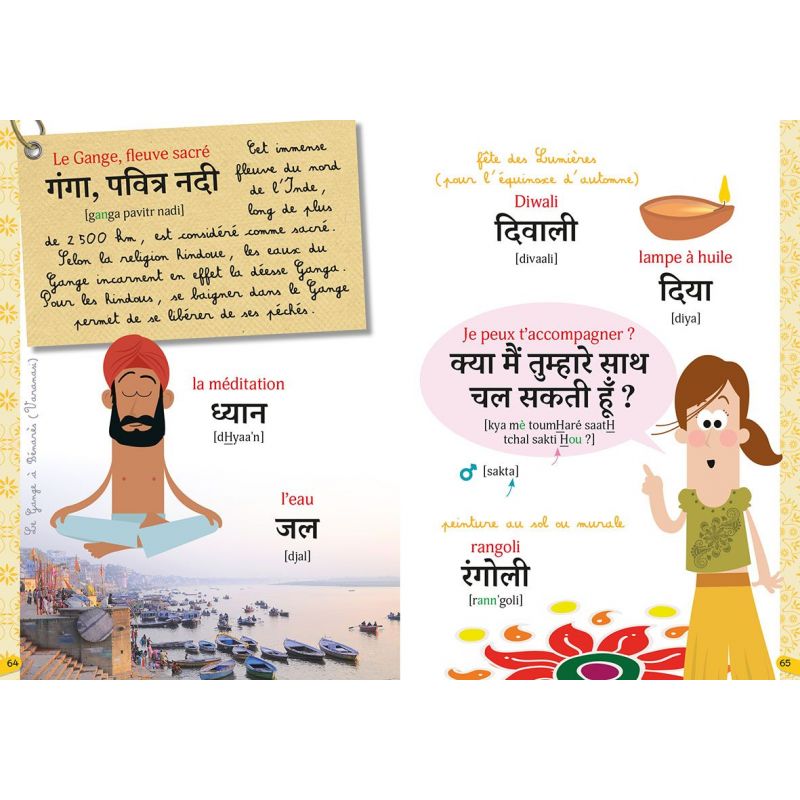 Le Gange, fleuve sacré
गंगा, पवित्र नदी
[ganga pavitr nadi]
Cet immense
fleuve du nord
de l'Inde,
long de plus
de 2 500 km, est considéré comme sacré.
Selon la religion hindoue, les eaux du
Gange incarnent en effet la déesse Ganga.
Pour les hindous, se baigner dans le Gange
permet de se libérer de ses péchés.
Le Gange à Bénarès (Varanasi)
la méditation
ध्यान
[dHyaa'n]
l'eau
जल
[djal]
64
fête des Lumières
(pour l'équinoxe d'automne)
Diwali
दिवाली
[divaali]
lampe à huile
दिया
[diya]
Je peux t'accompagner ?
क्या मैं तुम्हारे साथ
चल सकती हूँ ?
[kya mè toumHaré saatH
tchal sakti Hou ?]
♂ [sakta]
peinture au sol ou murale
rangoli
रंगोली
[rann'goli]
65